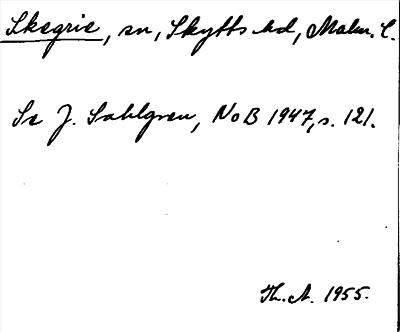 Skegrie, sn, Skytts hd, Malm. l.
Se J. Sahlgren, NoB 1947, s. 121.
Th. A. 1955.